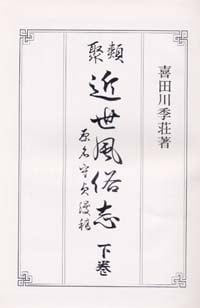 喜田川季荘著
類聚
近世風俗志
原名守貞漫稿
下巻